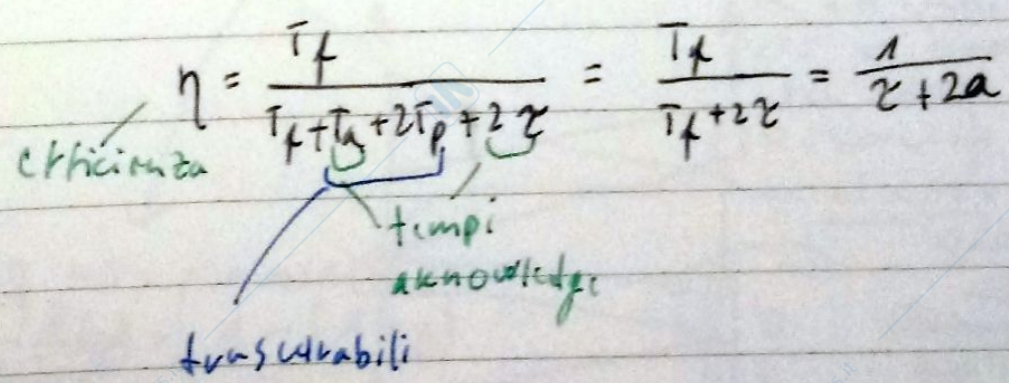 η = T_f / (T_f + T_a + 2T_p + 2τ) = T_f / (T_f + 2τ) = 1 / (τ + 2a)
efficienza
tempi
aknowledge
trascurabili